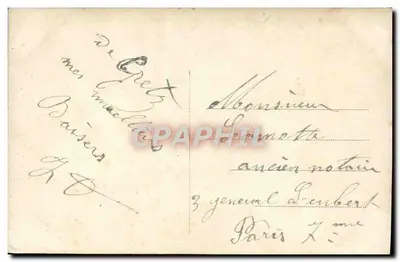 De Gretz
mes meilleurs
Baisers
Monsieur
Lamotte
ancien notaire
3 general Lambert
Paris 7me
CPARAMA